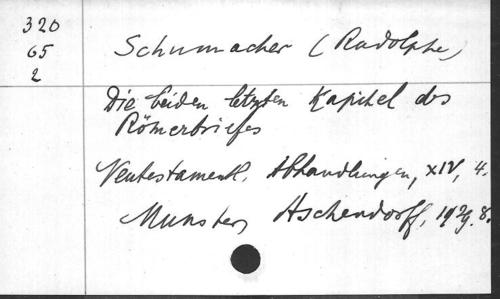 320
65
2
Schumacher (Rudolphe)
Die beiden letzten Kapitel des
Römerbriefes
Neutestamentl. Abhandlungen, XIV, 4.
Munster, Aschendorff, 1929. 8.